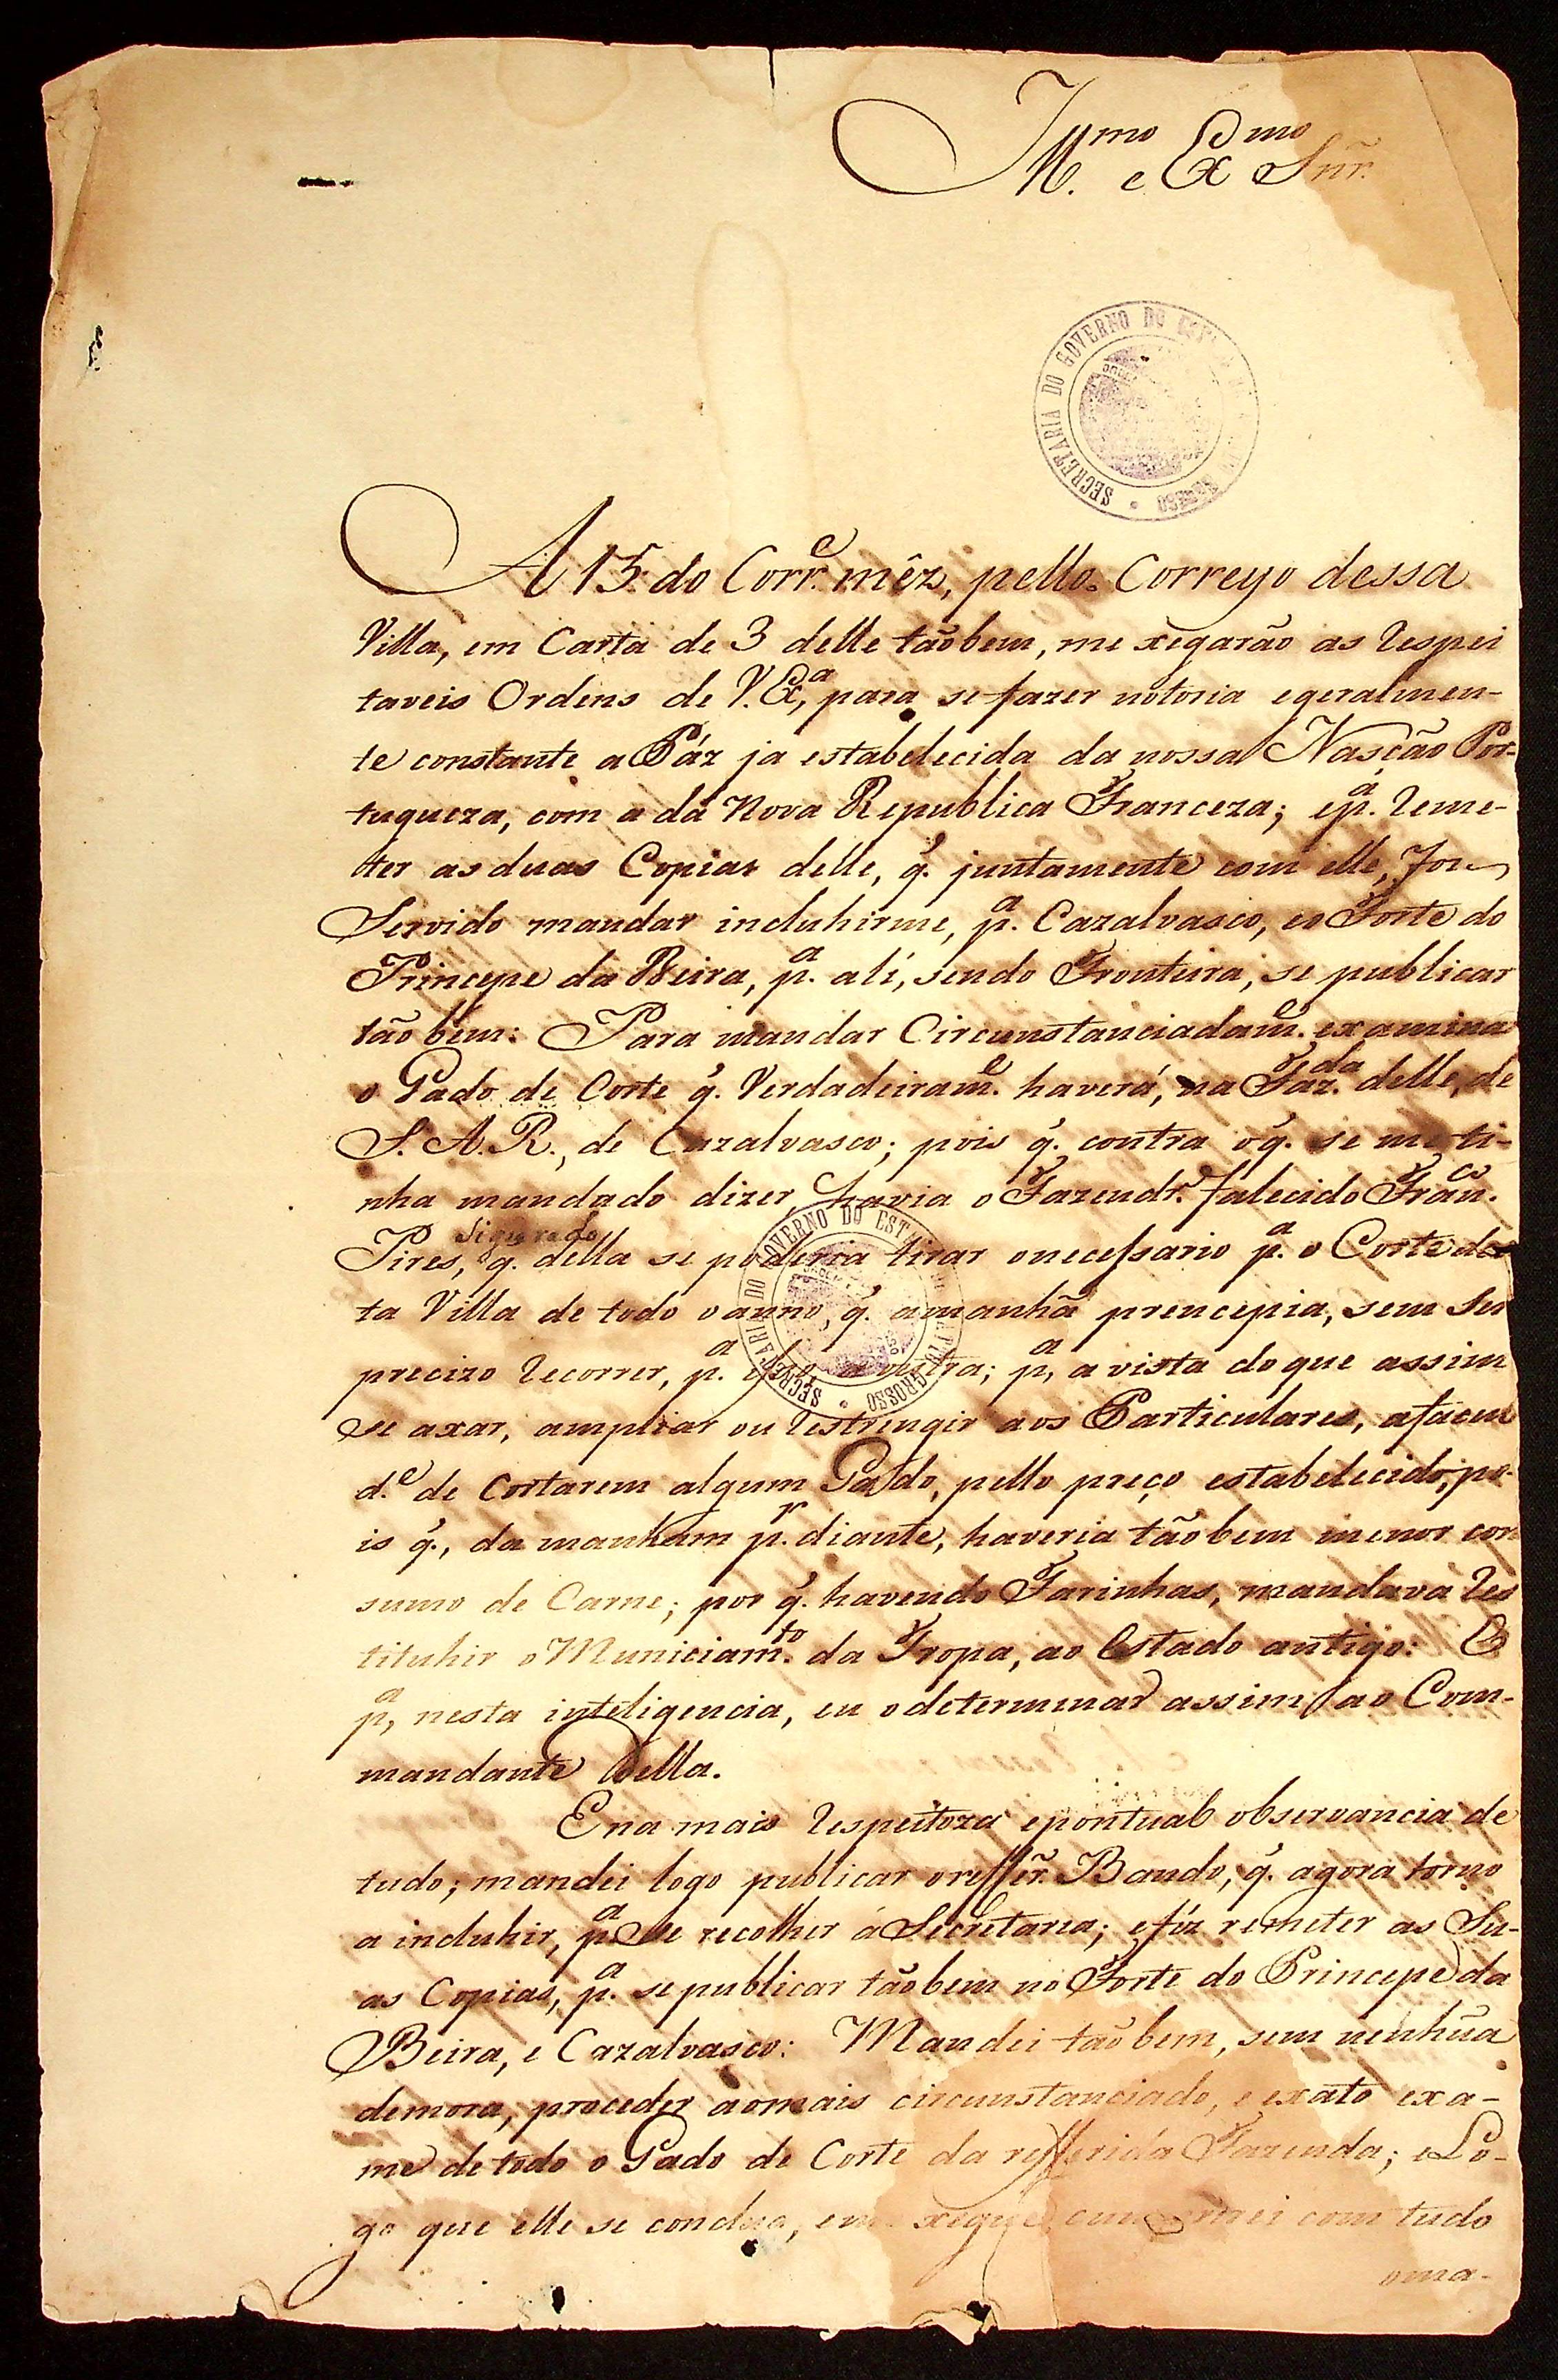 Ill.mo e Ex.mo Snr.
SECRETARIA DO GOVERNO DO ESTADO DE MATTO GROSSO
A 15 do Corr.e mêz, pello Correyo dessa
Villa, em Carta de 3 delle tãobem, me xegarão as respei
taveis Ordens de V. Ex.a, para se fazer notoria egeralmen-
te constante a Páz ja estabelecida da nossa Nasção Por-
tugueza, com a da Nova Republica Franceza; ep.a reme-
ter as duas Copias delle, q. juntamente com elle, foi
Servido mandar incluhirme, p.a Cazalvasco, eo Forte do
Princepe da Beira, p.a alí, sendo Fronteira, se publicar
tão bem: Para mandar Circunstanciadam.e examinar
o Gado de Corte q. Verdadeiram.e haverá, na Faz.da delle, de
S. A. R., de Cazalvasco; pois q. contra oq. se me ti-
nha mandado dizer, havia o Fazendr.o falecido Fran.co
Pires, sigurado
q. della se poderia tirar onecessario p.a o Corte des
ta Villa de todo oanno, q. amanhã prencepia, sem ser
precizo recorrer, p.a isso a outra; p.a, a vista do que assim
se axar, ampliar ou restringir aos Particulares, afacul
d.e de Cortarem algum Gado, pello preço estabelecido; po-
is q., da manham p.r diante, haveria tãobem menor con
sumo de Carne; por q. havendo Farinhas, mandava res
tituhir o Municiam.to da Tropa, ao Estado antigo: E
p.a, nesta inteligencia, eu odeterminar assim ao Com-
mandante della.
Ena mais respeitoza epontual observancia de
tudo; mandei logo publicar oreffer.o Bando, q. agora torno
a incluhir, p.a se recolher á Secretaria; efiz remeter as Su-
as Copias, p.a se publicar tãobem no Forte do Princepe da
Beira, e Cazalvasco: Mandei tão bem, sem nenhũa
demora, proceder aomais circunstanciado, e exato exa-
me de todo o Gado de Corte da refferida Fazenda; eLo-
go que elle se conclua, eme xegue, com tudo
oma-
SECRETARIA DO GOVERNO DO ESTADO DE MATTO GROSSO